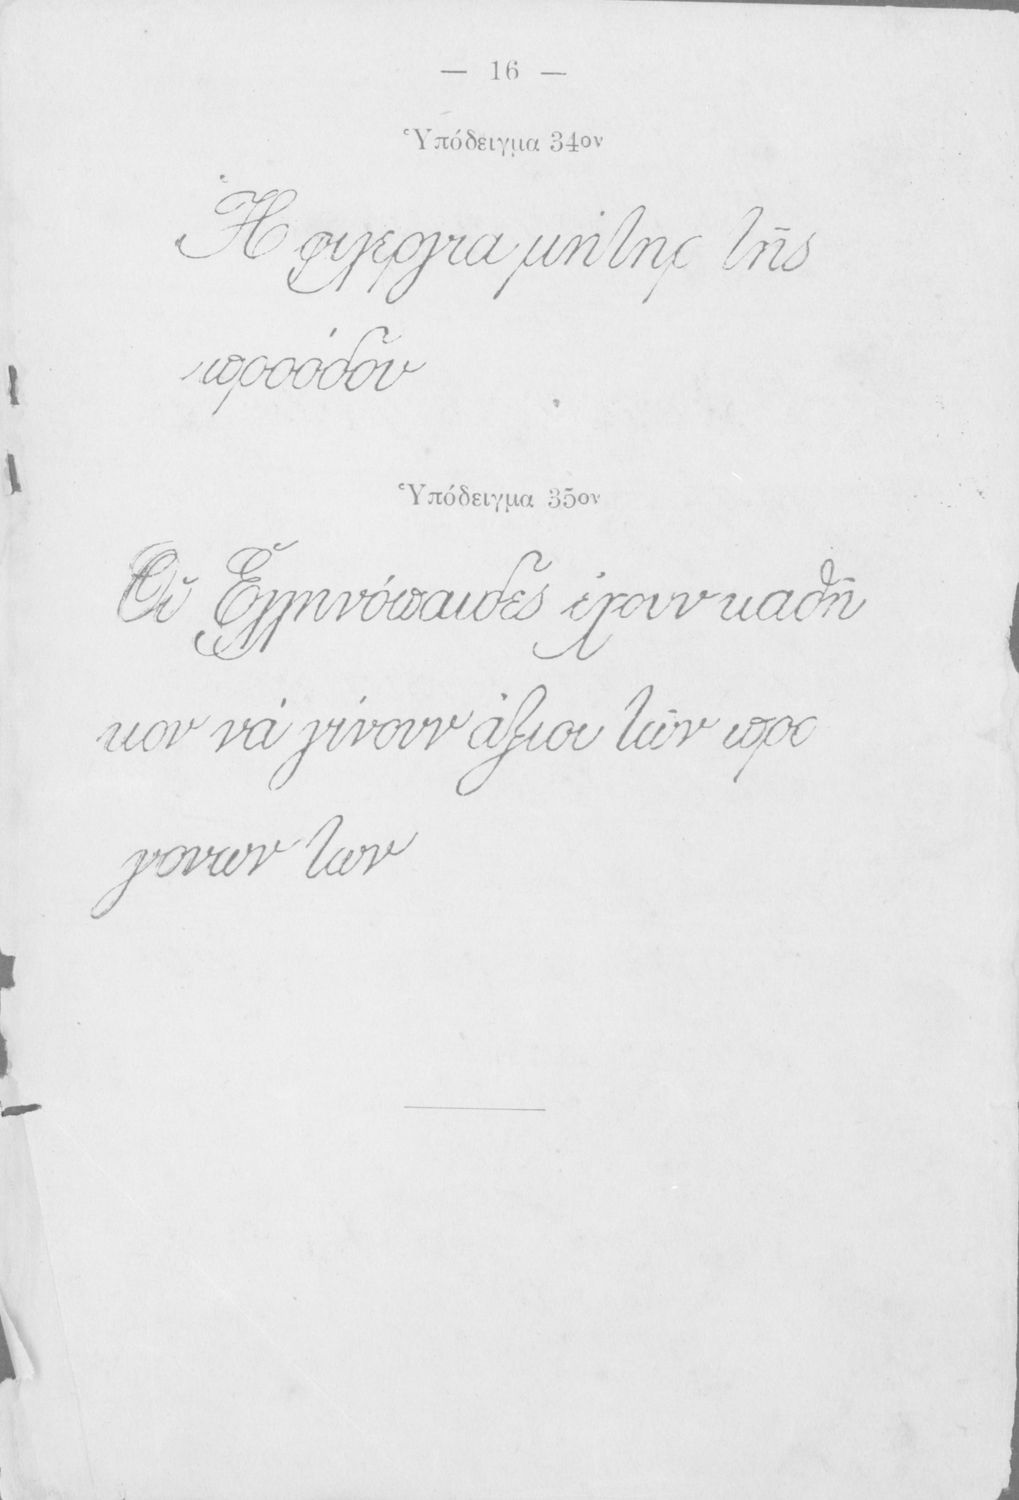 — 16 —
Ὑπόδειγμα 34ον
Ἡ φιλεργία μήτηρ τῆς
προόδου
Ὑπόδειγμα 35ον
Οἱ Ἑλληνόπαιδες ἔχουν καθῆ
κον νά γίνουν ἄξιοι τῶν προ
γόνων των